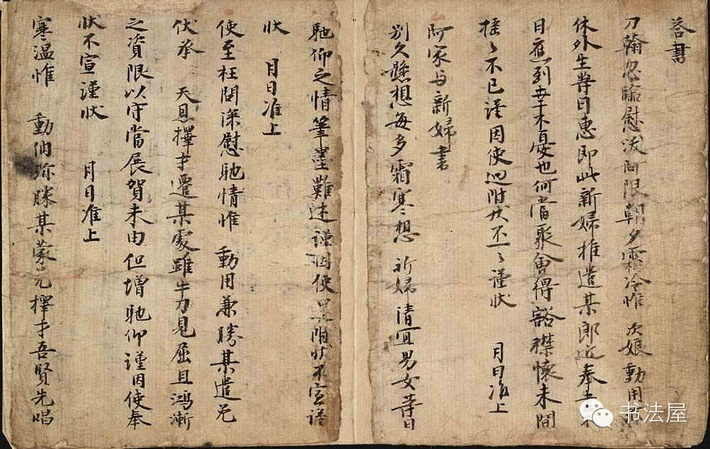 答書
刀翰忽臨慰沃何限朝夕霜冷惟 次娘動用
休外生等日惠即此新婦推遣某郎近奉 不
日應到 安也何當聚會得豁襟懷未間
搖々不已謹因使迴附狀不一々謹狀 月日准上
阿家与新婦書
別久懸想每多霜寒想 新婦清宜男女等日
馳仰之情筆墨難述謹因使 附狀不宣謹
狀 月日准上
使至枉問深慰馳情惟 動用兼勝某遣免
伏承 天恩擇才遷某處雖牛刀見屈且鴻漸
之資限以守當展賀未由但增馳仰謹因使奉
狀不宣謹狀 月日准上
寒温惟 動 弥勝某蒙免擇才吾賢先唱
书法屋